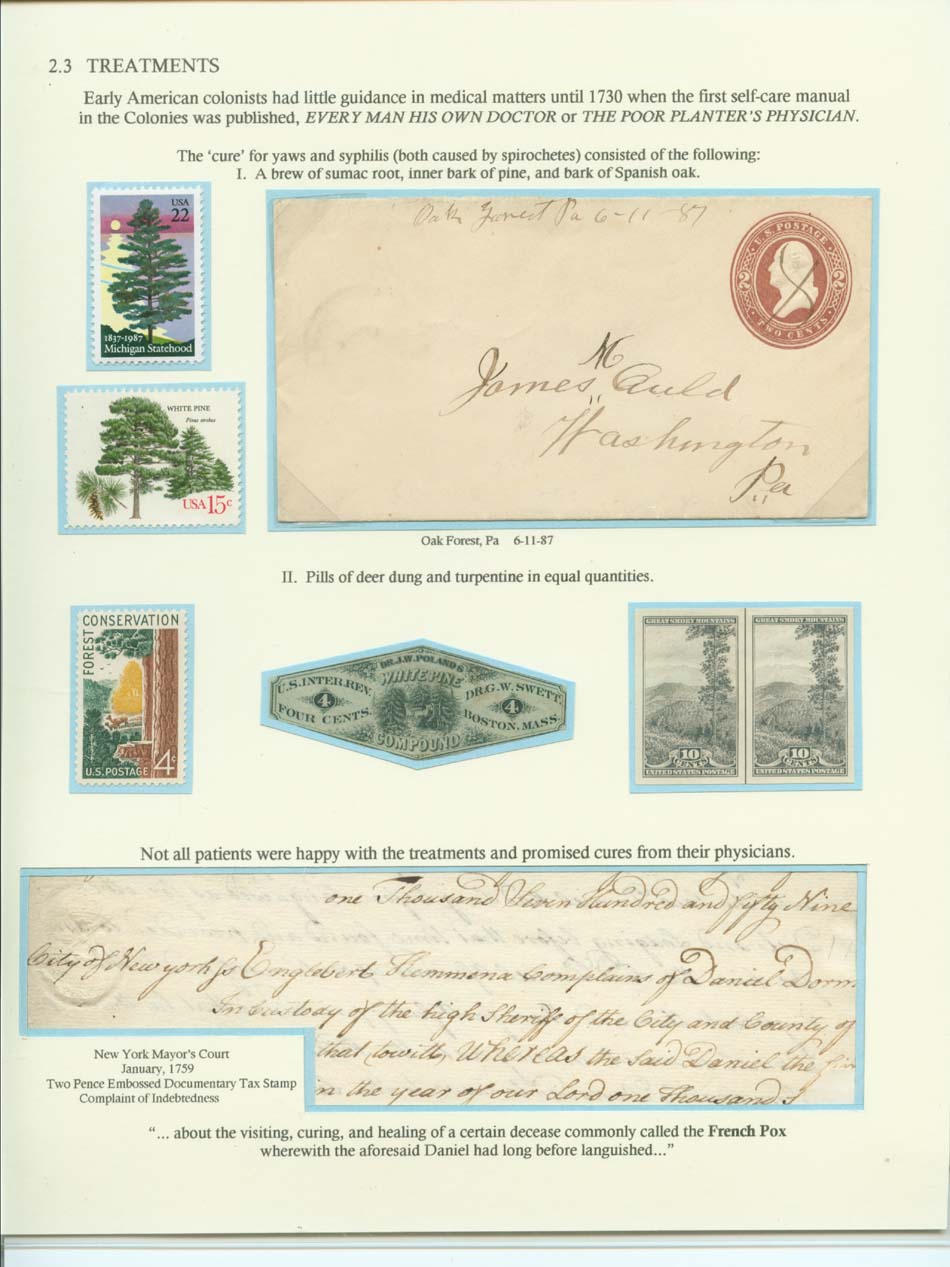 2.3 TREATMENTS
Early American colonists had little guidance in medical matters until 1730 when the first self-care manual
in the Colonies was published, EVERY MAN HIS OWN DOCTOR or THE POOR PLANTER'S PHYSICIAN.
The 'cure' for yaws and syphilis (both caused by spirochetes) consisted of the following:
I. A brew of sumac root, inner bark of pine, and bark of Spanish oak.
USA
22
1837-1987
Michigan Statehood
WHITE PINE
Pinus strobus
USA 15c
Oak Forest Pa 6-11-87
U.S. POSTAGE
2 2
TWO CENTS
James M Auld
Washington
Pa
Oak Forest, Pa 6-11-87
II. Pills of deer dung and turpentine in equal quantities.
FOREST CONSERVATION
U.S. POSTAGE 4¢
DR. J.W. POLAND'S
WHITE PINE
COMPOUND
U.S. INTER. REV.
4
FOUR CENTS.
DR. G.W. SWETT
4
BOSTON, MASS.
GREAT SMOKY MOUNTAINS
10
CENTS
UNITED STATES POSTAGE
GREAT SMOKY MOUNTAINS
10
CENTS
UNITED STATES POSTAGE
Not all patients were happy with the treatments and promised cures from their physicians.
one Thousand Seven Hundred and fifty Nine
City of New york ss Englebert Kemmena Complains of Daniel Dorm
In Custody of the high Sheriff of the City and County of
that towitt, Whereas the said Daniel the
in the year of our Lord one Thousand S
New York Mayor's Court
January, 1759
Two Pence Embossed Documentary Tax Stamp
Complaint of Indebtedness
"... about the visiting, curing, and healing of a certain decease commonly called the French Pox
wherewith the aforesaid Daniel had long before languished..."